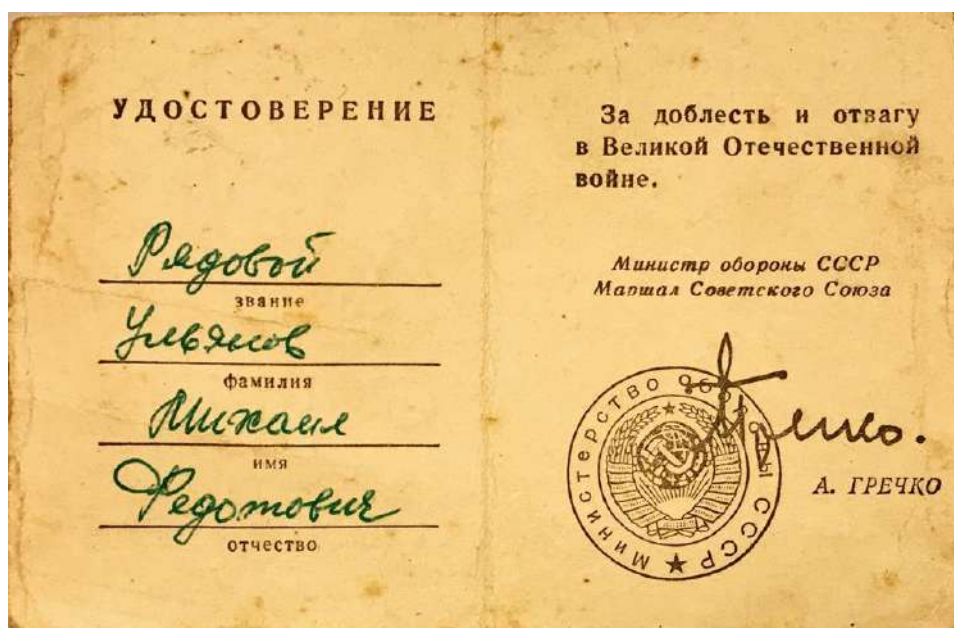 УДОСТОВЕРЕНИЕ
Рядовой
звание
Ульянов
фамилия
Михаил
имя
Федотович
отчество
За доблесть и отвагу
в Великой Отечественной
войне.
Министр обороны СССР
Маршал Советского Союза
МИНИСТЕРСТВО ОБОРОНЫ СССР
Гречко.
А. ГРЕЧКО